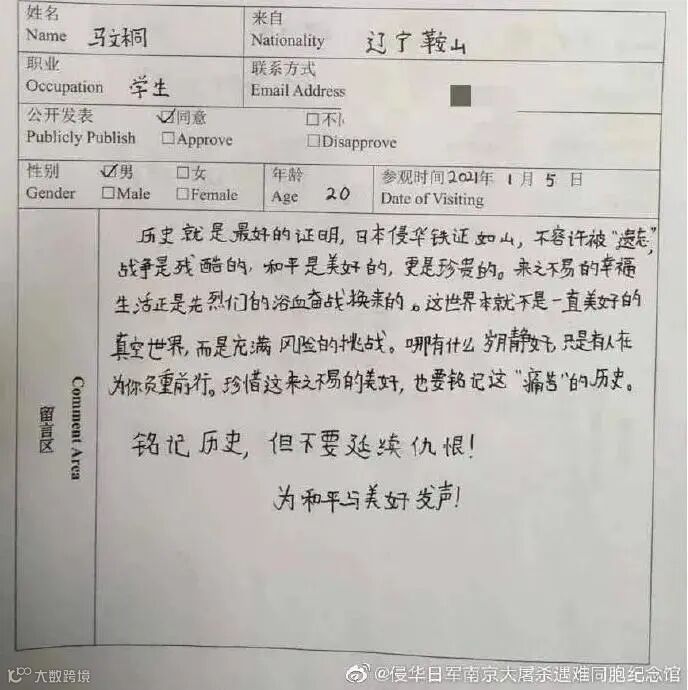 姓名
Name 马文桐
来自
Nationality 辽宁鞍山
职业
Occupation 学生
联系方式
Email Address
公开发表 ☑同意 □不
Publicly Publish □Approve □Disapprove
性别 ☑男 □女
Gender □Male □Female
年龄
Age 20
参观时间2021年1月5日
Date of Visiting
留言区
Comment Area
历史就是最好的证明,日本侵华铁证如山,不容许被“遗忘”,
战争是残酷的,和平是美好的,更是珍贵的。来之不易的幸福
生活正是先烈们的浴血奋战换来的。这世界本就不是一直美好的
真空世界,而是充满风险的挑战。哪有什么岁月静好,只是有人在
为你负重前行。珍惜这来之不易的美好,也要铭记这“痛苦”的历史。
铭记历史,但不要延续仇恨!
为和平与美好发声!
大数跨境
@侵华日军南京大屠杀遇难同胞纪念馆